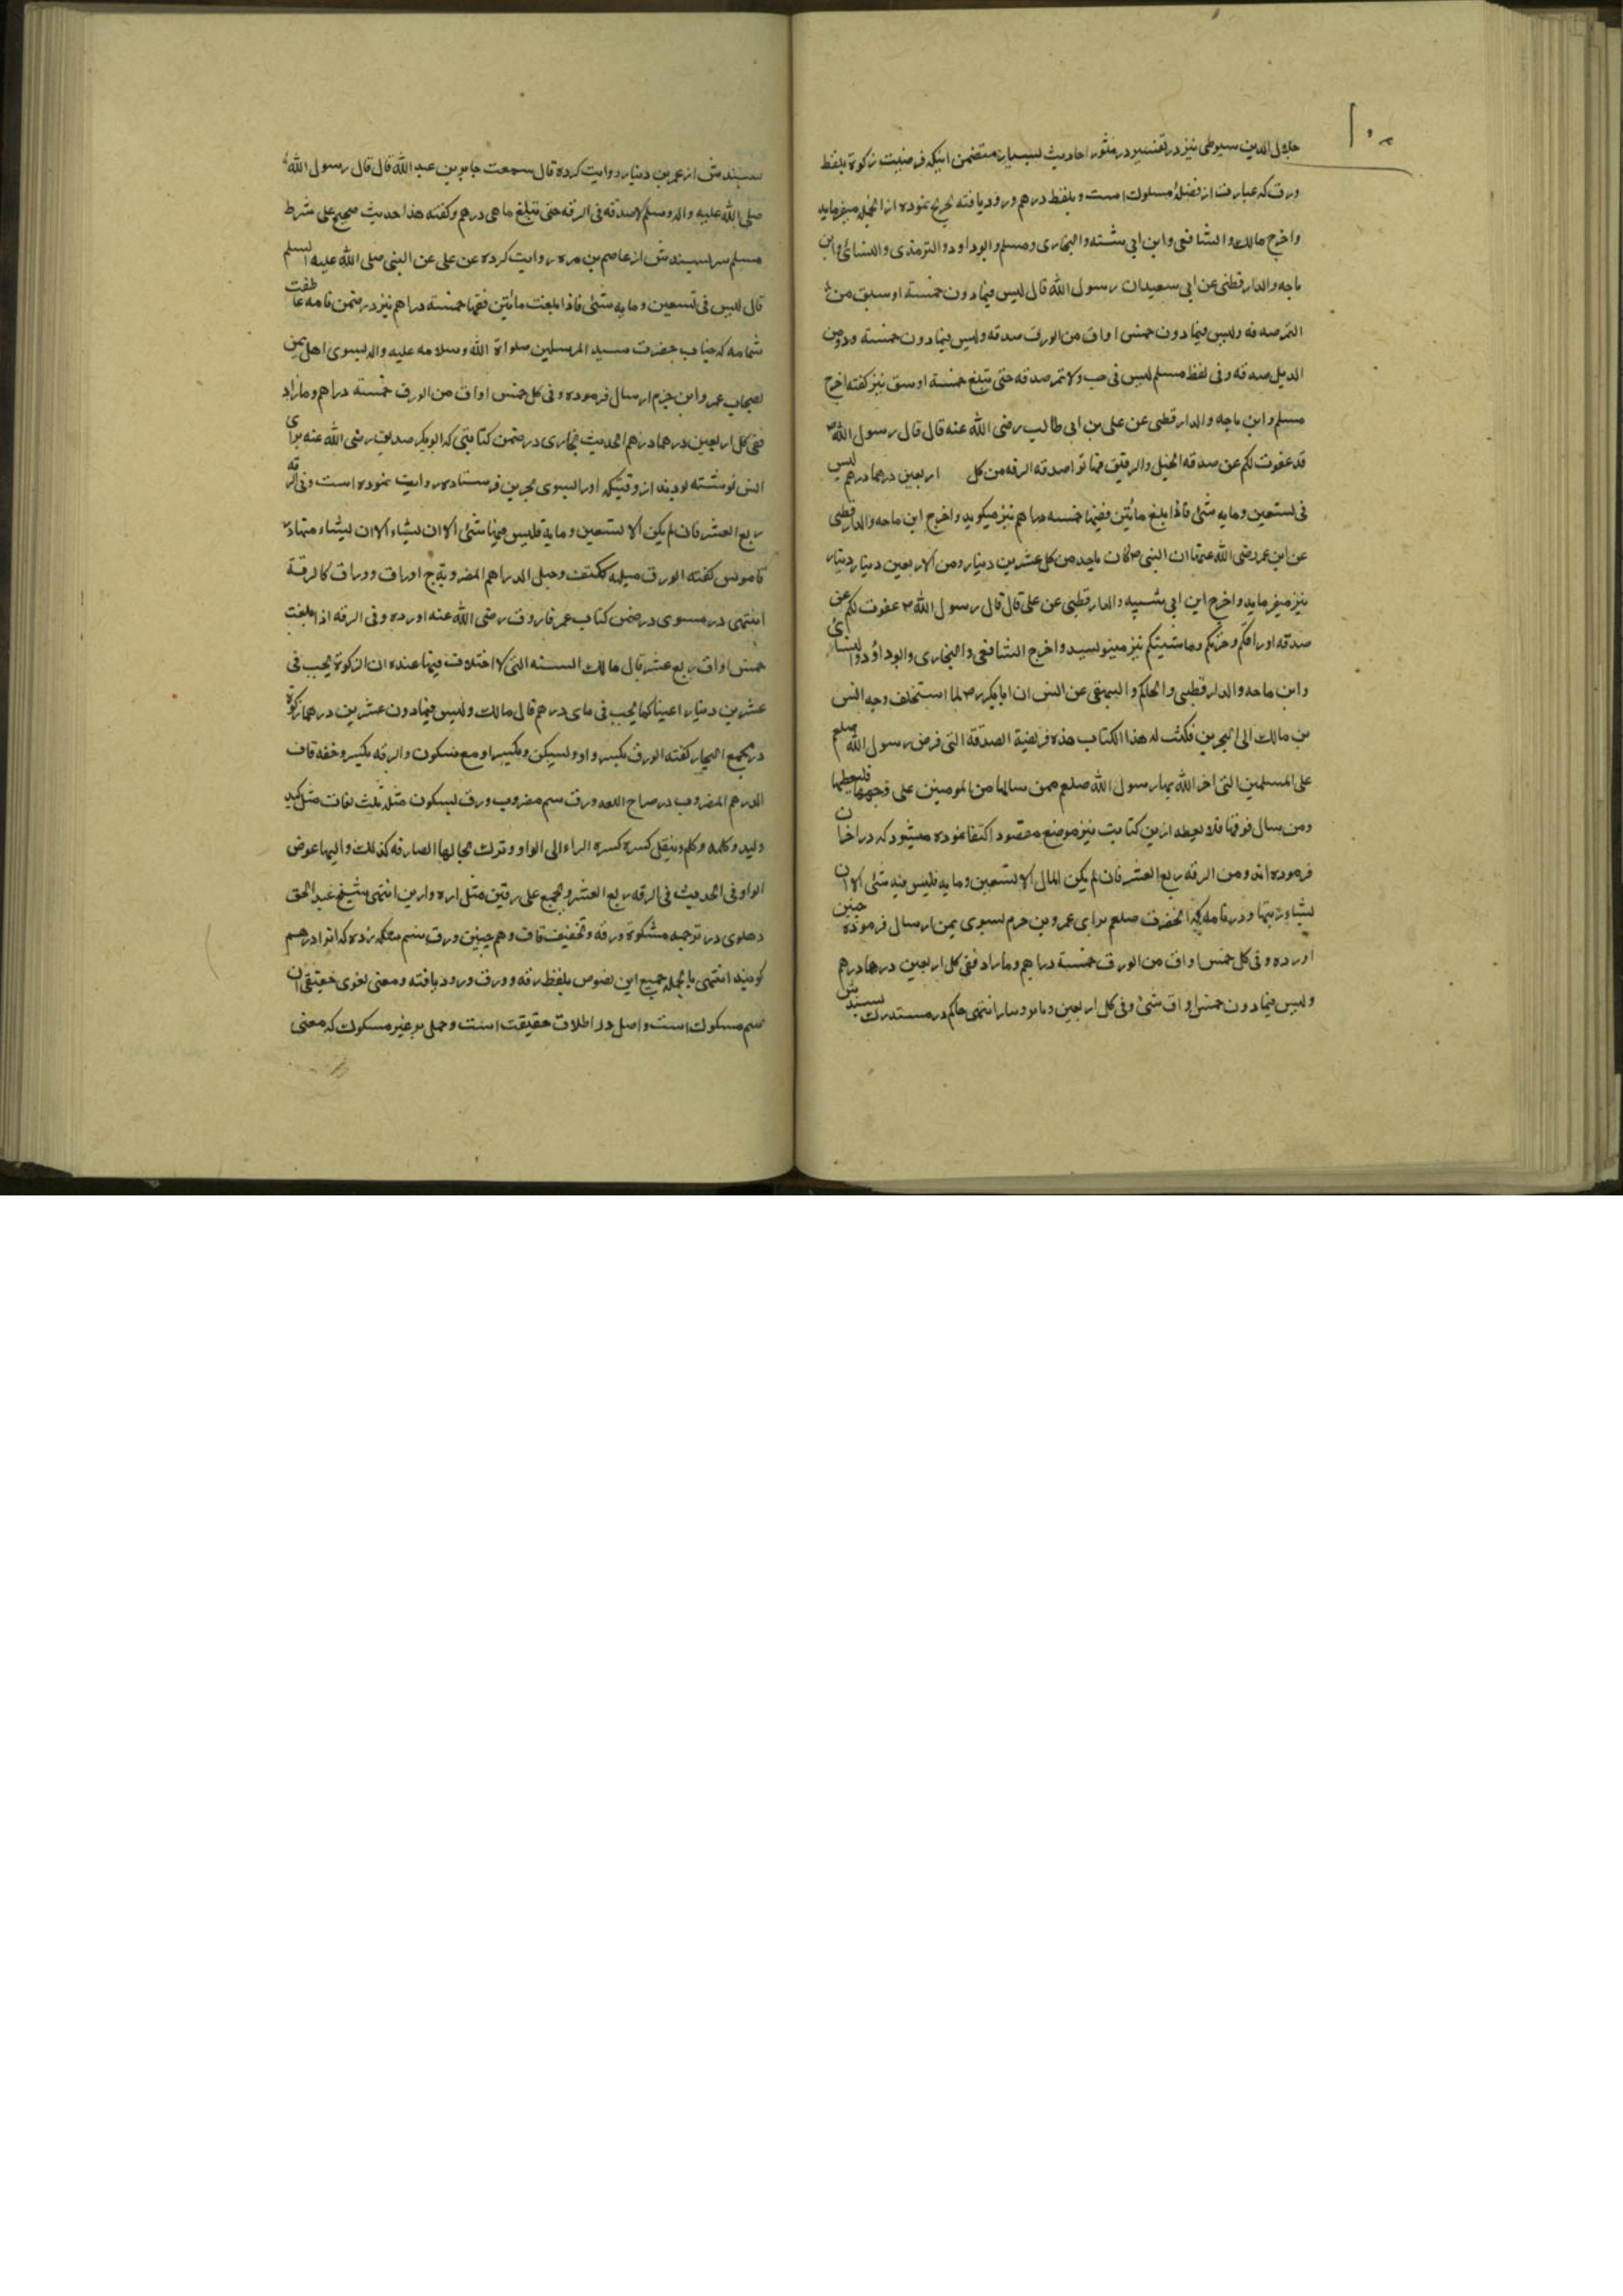 ١٠٠
جلال الدین سیوطی نیز در تفسیر در منثور احادیث بسیار متضمن اینکه فرضیت زکوة بلفظ
ورق که عبارت از فضهٔ مسکوک است و بلفظ درهم ورود یافته تخریج نموده از انجمله میفرماید
واخرج مالک والشافعی وابن ابی شیبه والبخاری ومسلم وابوداود والترمذی والنسائی وابن
ماجه والدارقطنی عن ابی سعید ان رسول الله قال لیس فیما دون خمسة اوسق من
التمر صدقه ولیس فیما دون خمس اواق من الورق صدقه ولیس فیما دون خمسة ذود من
الابل صدقه وفی لفظ مسلم لیس فی حب ولا تمر صدقه حتی تبلغ خمسة اوسق نیز گفته اخرج
مسلم وابن ماجه والدارقطنی عن علی بن ابی طالب رضی الله عنه قال قال رسول الله
قد عفوت لکم عن صدقه الخیل والرقیق فهاتوا صدقه الرقه من کل اربعین درهما درهم لیس
فی تسعین ومایه شئ فاذا بلغ مائتین ففیها خمسه دراهم نیز میگوید واخرج ابن ماجه والدارقطنی
عن ابن عمر رضی الله عنها ان النبی کان یاخذ من کل عشرین دینار ومن الاربعین دینار دینار
نیز میفرماید واخرج ابن ابی شیبه والدارقطنی عن علی قال قال رسول الله عفوت لکم عن
صدقه اورافکم وخزتکم وماشیتکم نیز مینویسد واخرج الشافعی والبخاری وابوداؤد والنسائی
وابن ماجه والدارقطنی والحاکم والبیهقی عن انس ان ابابکر لما استخلف وجه انس
بن مالک الی البحرین فکتب له هذا الکتاب هذه فریضة الصدقه التی فرض رسول الله صلعم
علی المسلمین التی امر الله بها رسول الله صلعم فمن سالها من المومنین علی وجهها فلیعطها
ومن سال فوقها فلا یعطه ازین کتابت نیز موضع مقصود اکتفا نموده میشود که در اخر ان
فرموده اند ومن الرقه ربع العشر فان لم یکن المال الا تسعین ومایه فلیس فیه شئ الا ان
یشاء ربها ودر نامه که انحضرت صلعم برای عمرو بن حزم بسوی یمن ارسال فرموده چنین
اورده وفی کل خمس اواق من الورق خمسة دراهم ومازاد ففی کل اربعین درهما درهم
ولیس فیما دون خمس اواق شئ وفی کل اربعین دینار دینار انتهی حاکم در مستدرک بسندش
بسندش از عمر بن دینار روایت کرده قال سمعت جابر بن عبد الله قال قال رسول الله
صلی الله علیه واله وسلم لا صدقه فی الرقه حتی تبلغ مائتی درهم وگفته هذا حدیث صحیح علی شرط
مسلم بسندش از عاصم بن مره روایت کرده عن علی عن النبی صلی الله علیه السلم
قال لیس فی تسعین ومایه شئ فاذا بلغت مائتین ففیها خمسة دراهم نیز در ضمن نامه عاطفت
شمامه که جناب حضرت سید المرسلین صلواة الله وسلامه علیه واله بسوی اهل یمن
بصحاب عمرو ابن حزم ارسال فرموده وفی کل خمس اواق من الورق خمسة دراهم ومازاد
ففی کل اربعین درهما درهم الحدیث بخاری در ضمن کتابتی که ابوبکر صدیق رضی الله عنه برای
انس نوشته بودند از وقتیکه اورا بسوی بحرین فرستاده روایت نموده است وفی الرقه
ربع العشر فان لم یکن الا تسعین ومایة فلیس فیها شئ الا ان یشاء الا ان یشاء ربها در
قاموس گفته الورق مثلثه ککتف وجبل الدراهم المضروبة ج اوراق ووراق کالرقة
انتهی در مسوی در ضمن کتاب عمر فاروق رضی الله عنه اورده وفی الرقه اذا بلغت
خمس اواق ربع عشر قال مالک السنه التی لا اختلاف فیها عنده ان الزکوة یجب فی
عشرین دینار اعینا کما یجب فی مای درهم قال مالک ولیس فیما دون عشرین درهما زکوة
در مجمع البحار گفته الورق بکسر واو ویسکن وبکسر او مع سکون والرقه بکسر وخفه قاف
الدرهم المضروب در صراح الورق سیم مضروب ورق بسکون مثله ثلث لغات مثل کبد
وکبد وکلمه وکلم وینقل کسره کسره الراء الی الواو وترک بحالها الصارفه کذلک والیها عوض
الواو فی الحدیث فی الرقه ربع العشر ویجمع علی رقین مثل اره وارین انتهی شیخ عبد الحق
دهلوی در ترجمه مشکوة ورقه وتخفیف قاف وهم چنین ورق سیم سکه زده که انرا درهم
گویند انتهی بالجمله جمیع این نصوص بلفظ رقه وورق ورود یافته ومعنی لغوی حقیقی ان
سیم مسکوک است واصل در اطلاق حقیقت است وحمل بر غیر مسکوک که معنی